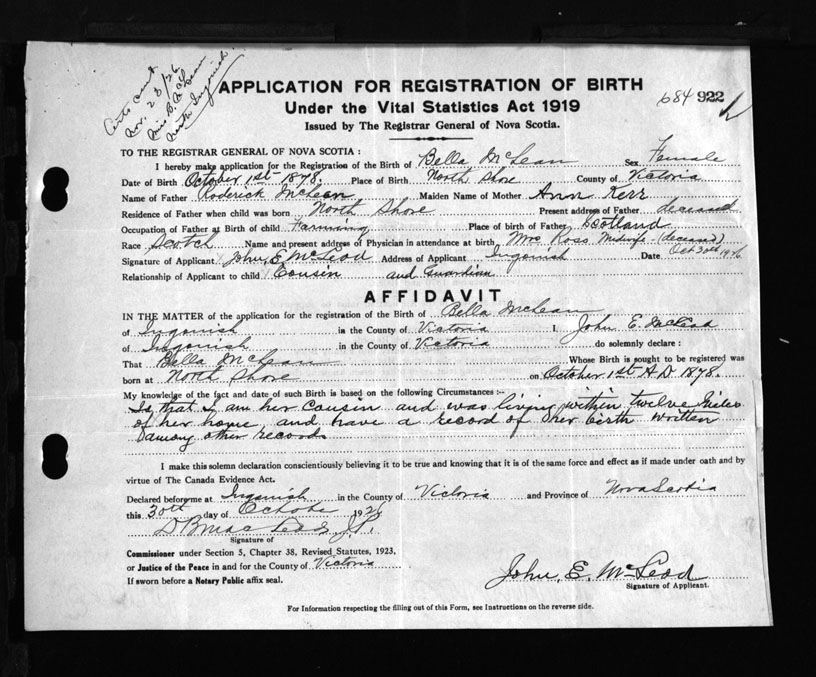 Certs sent
Nov. 28/26
Miss B. McLean
North Ingonish
APPLICATION FOR REGISTRATION OF BIRTH
684 922
Under the Vital Statistics Act 1919
Issued by The Registrar General of Nova Scotia.
TO THE REGISTRAR GENERAL OF NOVA SCOTIA :
I hereby make application for the Registration of the Birth of Bella McLean Sex Female
Date of Birth October 1st 1878. Place of Birth North Shore County of Victoria
Name of Father Roderick McLean Maiden Name of Mother Ann Kerr
Residence of Father when child was born North Shore Present address of Father deceased
Occupation of Father at Birth of child Farming Place of birth of Father Scotland
Race Scotch Name and present address of Physician in attendance at birth Mrs Ross Midwife (deceased)
Signature of Applicant John E McLeod Address of Applicant Ingonish Date Oct 30th 1926
Relationship of Applicant to child Cousin and Guardian
AFFIDAVIT
IN THE MATTER of the application for the registration of the Birth of Bella McLean
of Ingonish in the County of Victoria I, John E. McLeod
of Ingonish in the County of Victoria do solemnly declare :
That Bella McLean Whose Birth is sought to be registered was
born at North Shore on October 1st A.D. 1878.
My knowledge of the fact and date of such Birth is based on the following Circumstances :--
Is that I am her Cousin and was living within twelve miles
of her home, and have a record of her birth written
among other records
I make this solemn declaration conscientiously believing it to be true and knowing that it is of the same force and effect as if made under oath and by
virtue of The Canada Evidence Act.
Declared before me at Ingonish in the County of Victoria and Province of Nova Scotia
this 30th day of October 1926
D B MacLeod J.P.
Signature of
Commissioner under Section 5, Chapter 38, Revised Statutes, 1923.
or Justice of the Peace in and for the County of Victoria
If sworn before a Notary Public affix seal.
John, E. McLeod
Signature of Applicant.
For Information respecting the filling out of this Form, see Instructions on the reverse side.